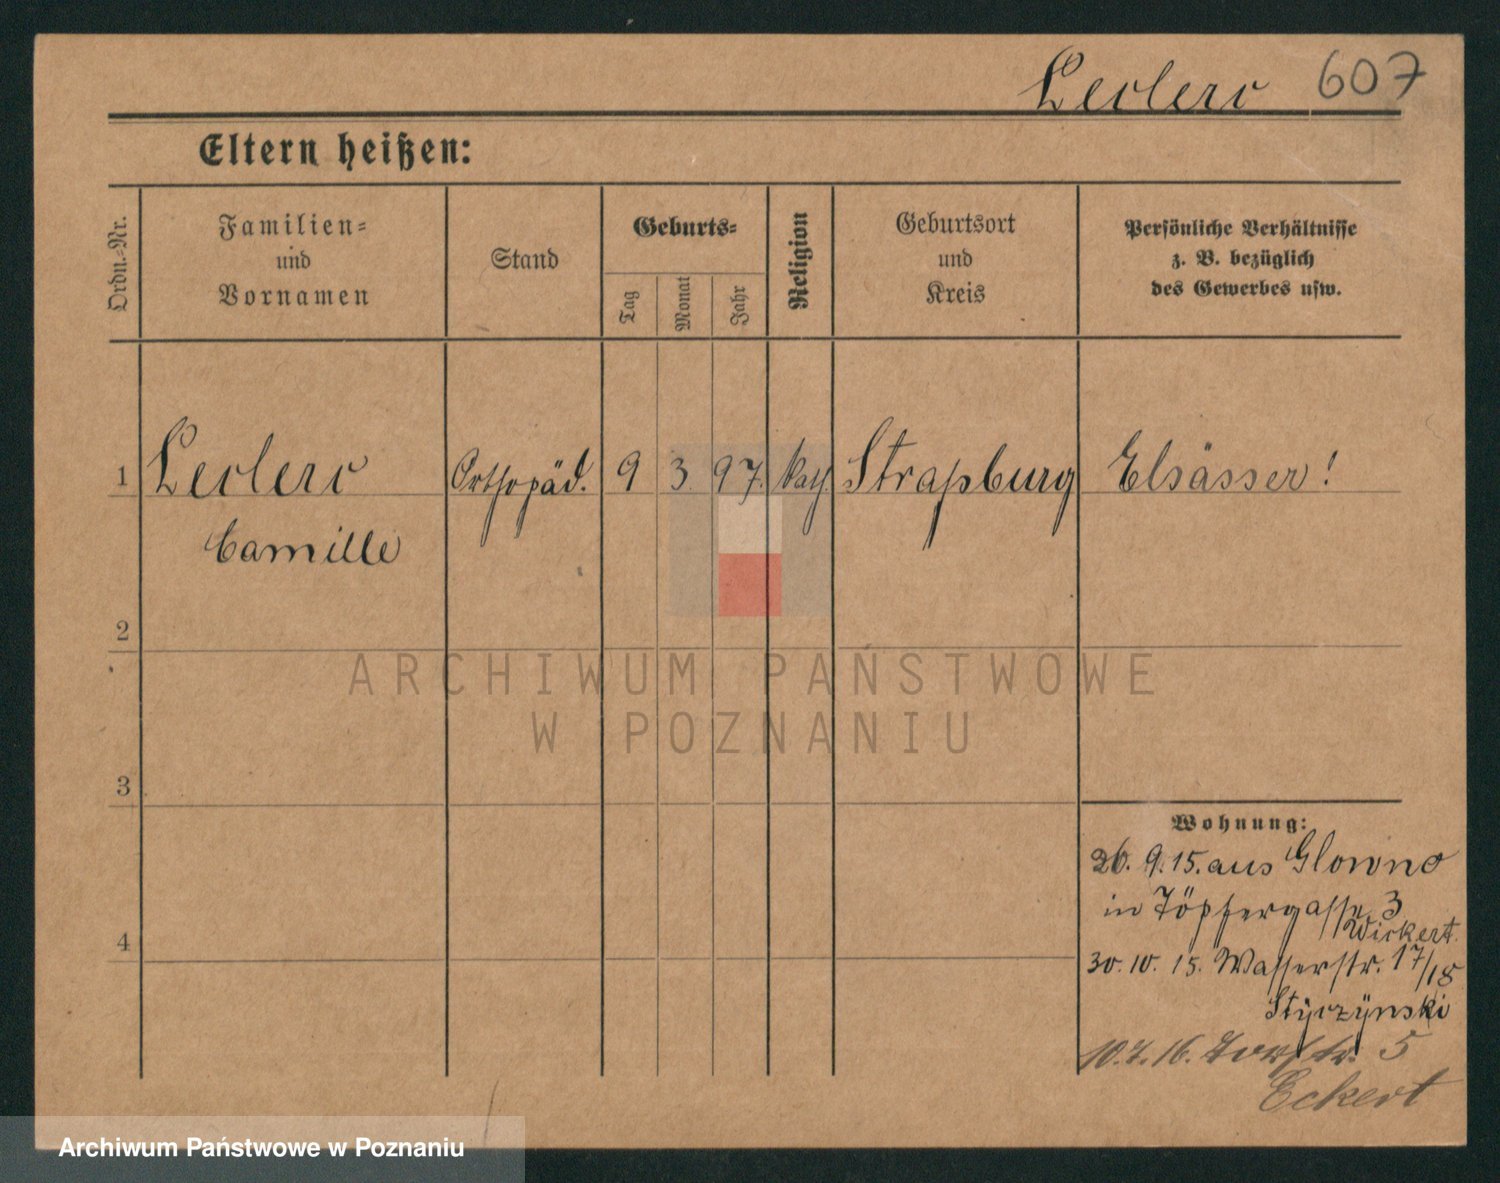 Leclerc 607
Eltern heißen:
Ordn.-Nr.
Familien-
und
Vornamen
Stand
Geburts-
Tag
Monat
Jahr
Religion
Geburtsort
und
Kreis
Persönliche Verhältnisse
z. B. bezüglich
des Gewerbes usw.
1 Leclerc Orthopäd. 9 3. 97. kath. Straßburg Elsässer!
Camille
2
ARCHIWUM PAŃSTWOWE
W POZNANIU
3
Wohnung:
26. 9. 15. aus Glowno
in Töpfergasse 3
Wickert.
4
30. 10. 15. Wasserstr. 17/18
Stÿczÿnski
10. 7. 16. 5
Eckert
Archiwum Państwowe w Poznaniu